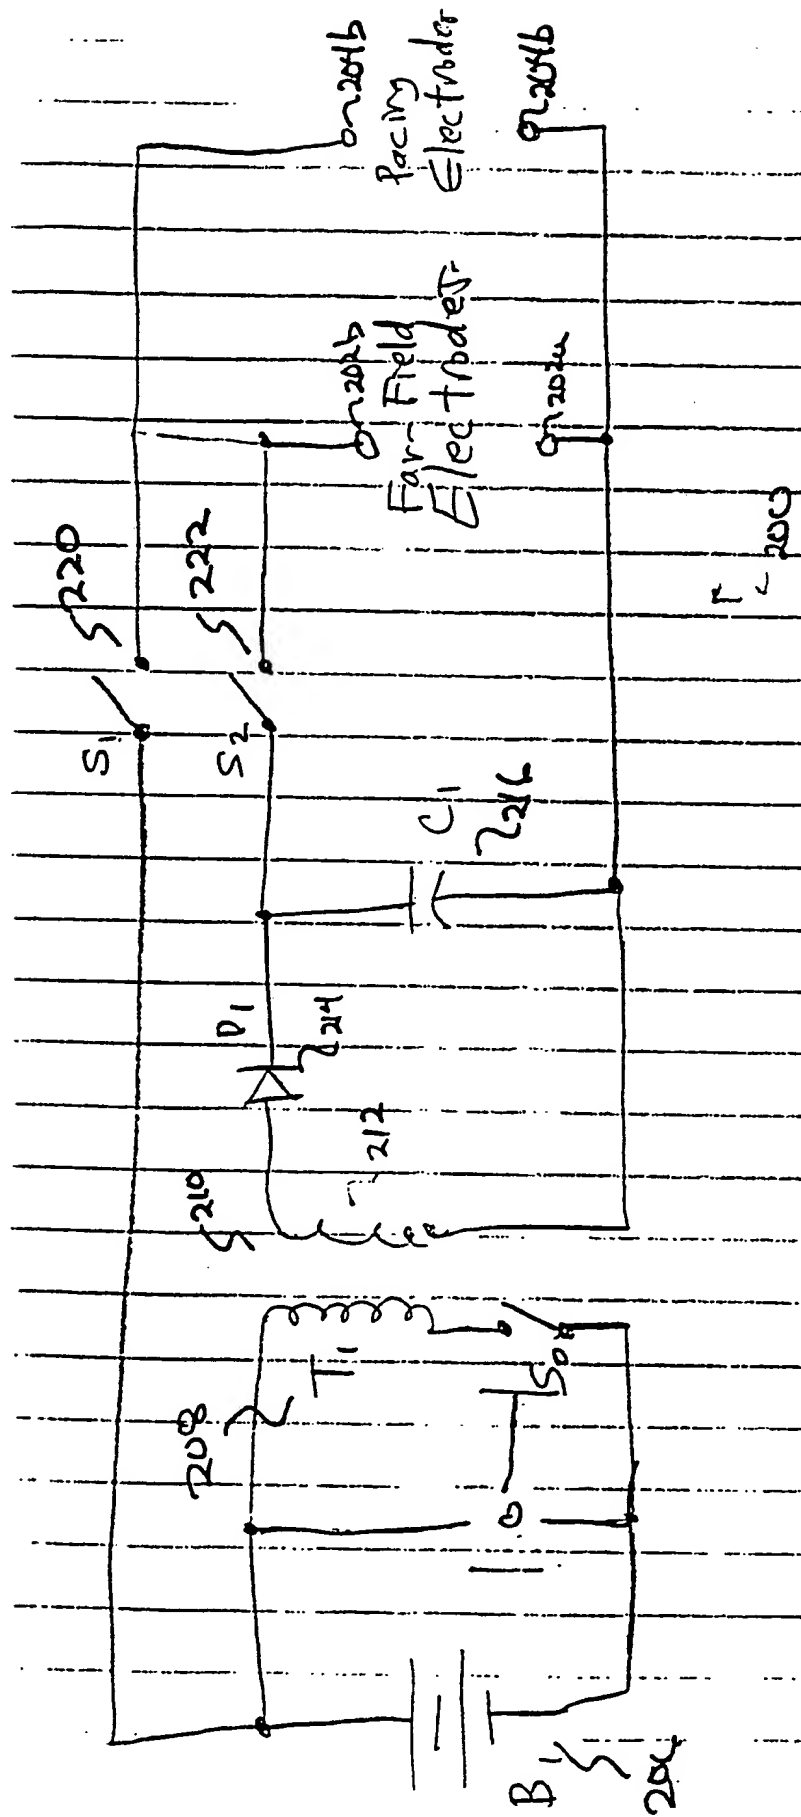 204b
Pacing
Electrodes
204b
202b
Far-Field
Electrodes
202a
220
222
200
S1
S2
C1
216
D1
214
212
210
T1
208
S0
B1